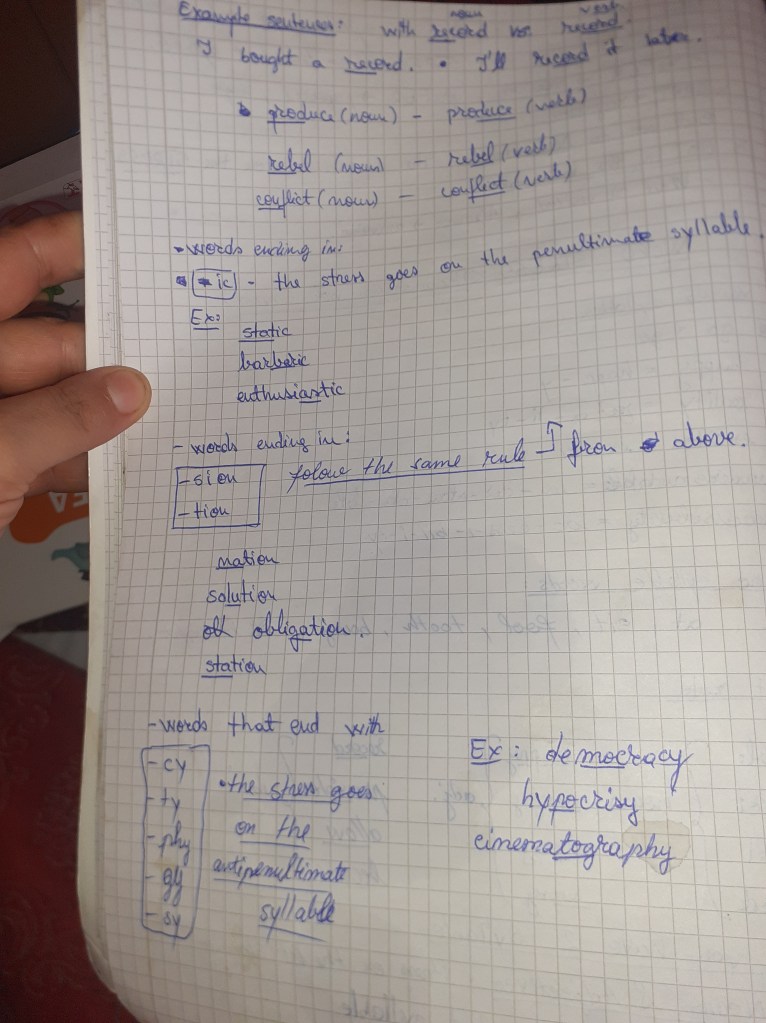 noun verb
Example sentences: with record vs. record.
I bought a record. • I'll record it later.
produce (noun) - produce (verb)
rebel (noun) - rebel (verb)
conflict (noun) - conflict (verb)
- words ending in:
-ic - the stress goes on the penultimate syllable.
Ex:
static
barbaric
enthusiastic
- words ending in:
-sion folowe the same rule from above.
-tion
nation
solution
obligation.
station
- words that end with
-cy
-ty
-phy
-gy
-sy
• the stress goes
on the
antipenultimate
syllable
Ex: democracy
hypocrisy
cinematography